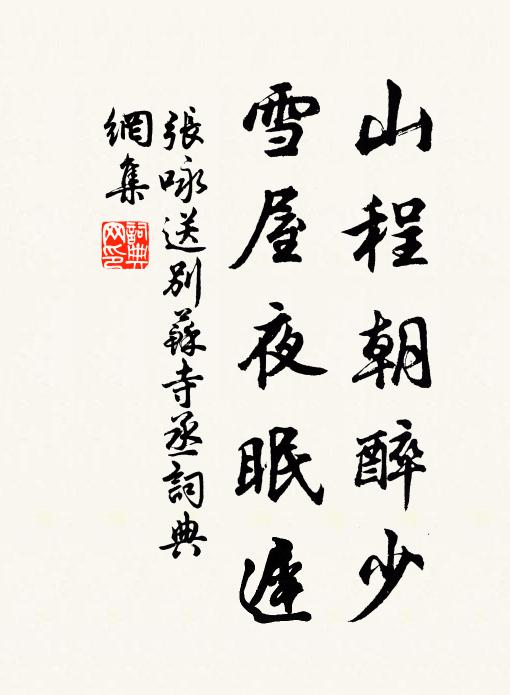 山程朝醉少
雪屋夜眠遲
張咏送别蘇寺丞詞典
網集
詞典
网印